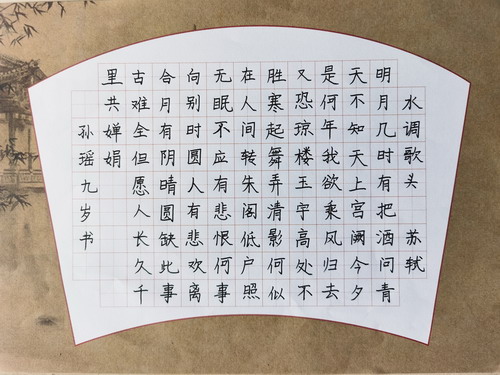 水调歌头 苏轼
明月几时有把酒问青
天不知天上宫阙今夕
是何年我欲乘风归去
又恐琼楼玉宇高处不
胜寒起舞弄清影何似
在人间转朱阁低户照
无眠不应有悲恨何事
向别时圆人有悲欢离
合月有阴晴圆缺此事
古难全但愿人长久千
里共婵娟
孙瑶九岁书